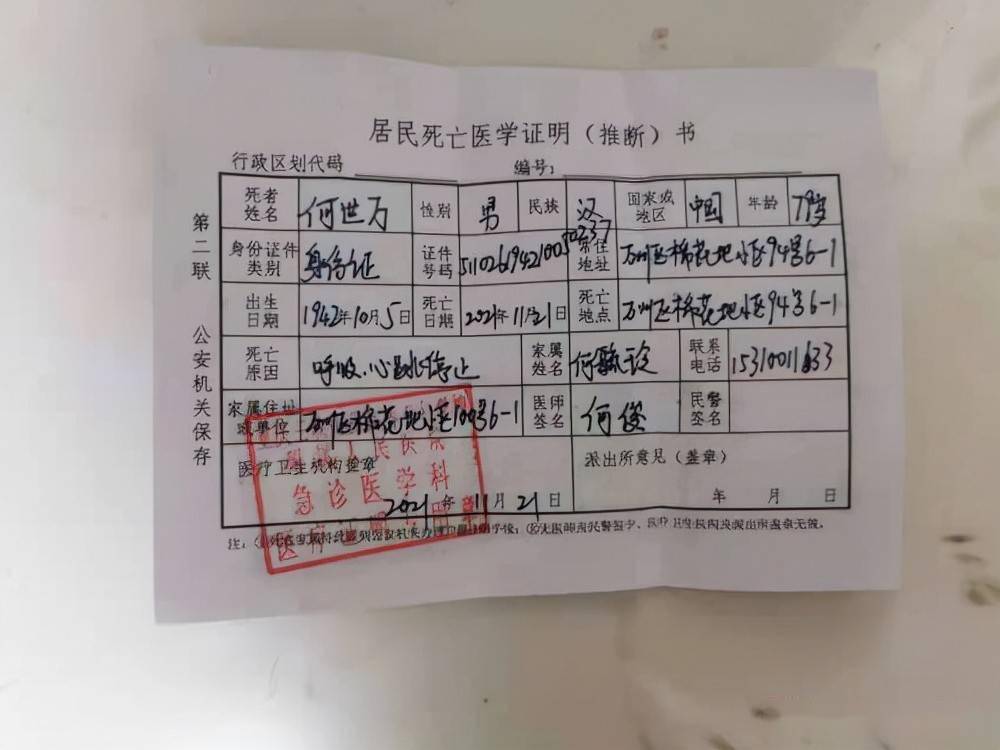 居民死亡医学证明（推断）书
行政区划代码 编号：
第二联 公安机关保存
死者姓名 何世万 性别 男 民族 汉 国家或地区 中国 年龄 79岁
身份证件类别 身份证 证件号码 常住地址 万州区棉花地小区94号6-1
出生日期 1942年10月5日 死亡日期 2021年11月21日 死亡地点 万州区棉花地小区94号6-1
死亡原因 呼吸、心跳停止 家属姓名 何 联系电话 15310011633
家属住址或单位 万州区棉花地小区100号6-1 医师签名 何俊 民警签名
医疗卫生机构签章 派出所意见（签章）
人民医院
急诊医学科
医疗证明专用章
2021年11月21日 年 月 日
注：